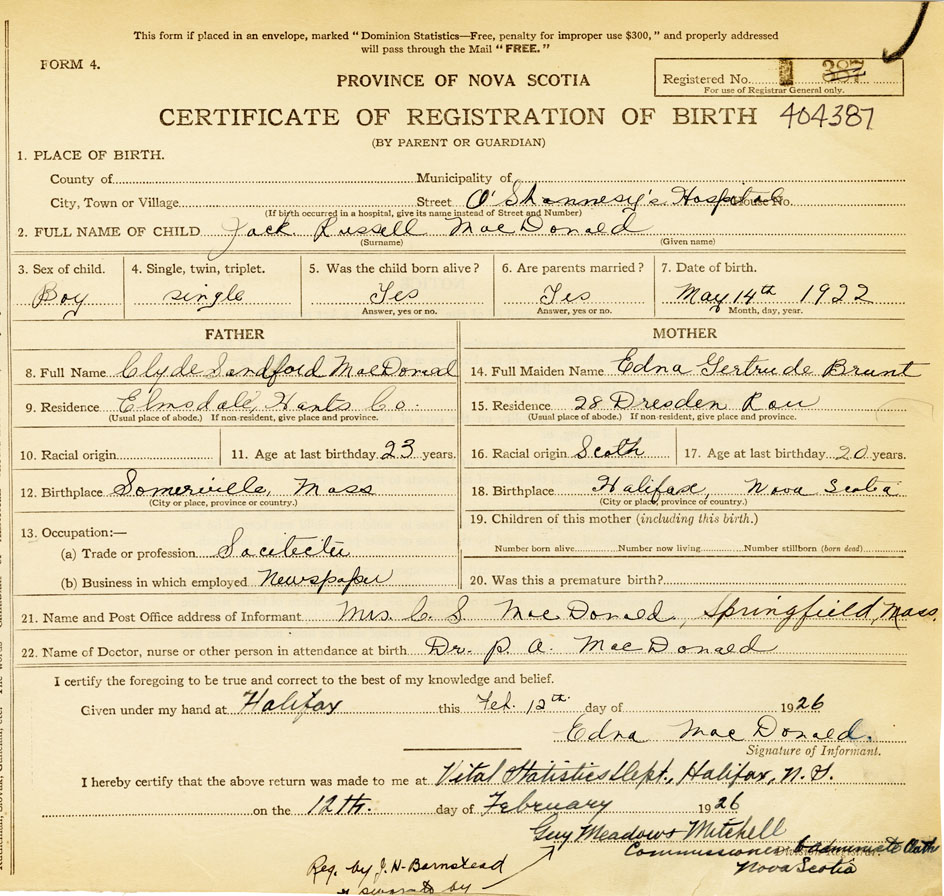 This form if placed in an envelope, marked "Dominion Statistics—Free, penalty for improper use $300," and properly addressed
will pass through the Mail "FREE."
FORM 4.
PROVINCE OF NOVA SCOTIA
Registered No. 387
For use of Registrar General only.
CERTIFICATE OF REGISTRATION OF BIRTH 404387
(BY PARENT OR GUARDIAN)
1. PLACE OF BIRTH.
County of Municipality of
City, Town or Village Street O'Shannesy's Hospital House No.
(If birth occurred in a hospital, give its name instead of Street and Number)
2. FULL NAME OF CHILD Jack Russell MacDonald
(Surname) (Given name)
3. Sex of child. 4. Single, twin, triplet. 5. Was the child born alive? 6. Are parents married? 7. Date of birth.
Boy single Yes Yes May 14th 1922
Answer, yes or no. Answer, yes or no. Month, day, year.
FATHER MOTHER
8. Full Name Clyde Sandford MacDonald 14. Full Maiden Name Edna Gertrude Brunt
9. Residence Elmsdale, Hants Co. 15. Residence 28 Dresden Row
(Usual place of abode.) If non-resident, give place and province. (Usual place of abode.) If non-resident, give place and province.
10. Racial origin 11. Age at last birthday 23 years. 16. Racial origin Scoth 17. Age at last birthday 20 years.
12. Birthplace Somerville, Mass 18. Birthplace Halifax, Nova Scotia
(City or place, province or country.) (City or place, province or country.)
13. Occupation:— 19. Children of this mother (including this birth.)
(a) Trade or profession Number born alive Number now living Number stillborn (born dead)
(b) Business in which employed Newspaper 20. Was this a premature birth?
21. Name and Post Office address of Informant Mrs. C. S. MacDonald, Springfield, Mass.
22. Name of Doctor, nurse or other person in attendance at birth Dr. P. A. MacDonald
I certify the foregoing to be true and correct to the best of my knowledge and belief.
Given under my hand at Halifax this Feb. 12th day of 1926
Edna MacDonald.
Signature of Informant.
I hereby certify that the above return was made to me at Vital Statistics Dept., Halifax, N.S.
on the 12th. day of February 1926
Guy Meadows Mitchell
Commissioner to administer Oaths
Division Registrar.
Nova Scotia
Reg. by J. H. Barnstead
by